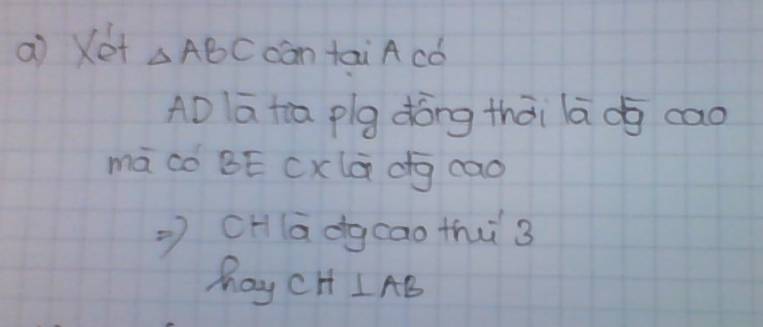 a) Xét △ABC cân tại A có
AD là tia p/g đồng thời là đg cao
mà có BE cx là đg cao
=> CH là đg cao thứ 3
hay CH ⊥ AB